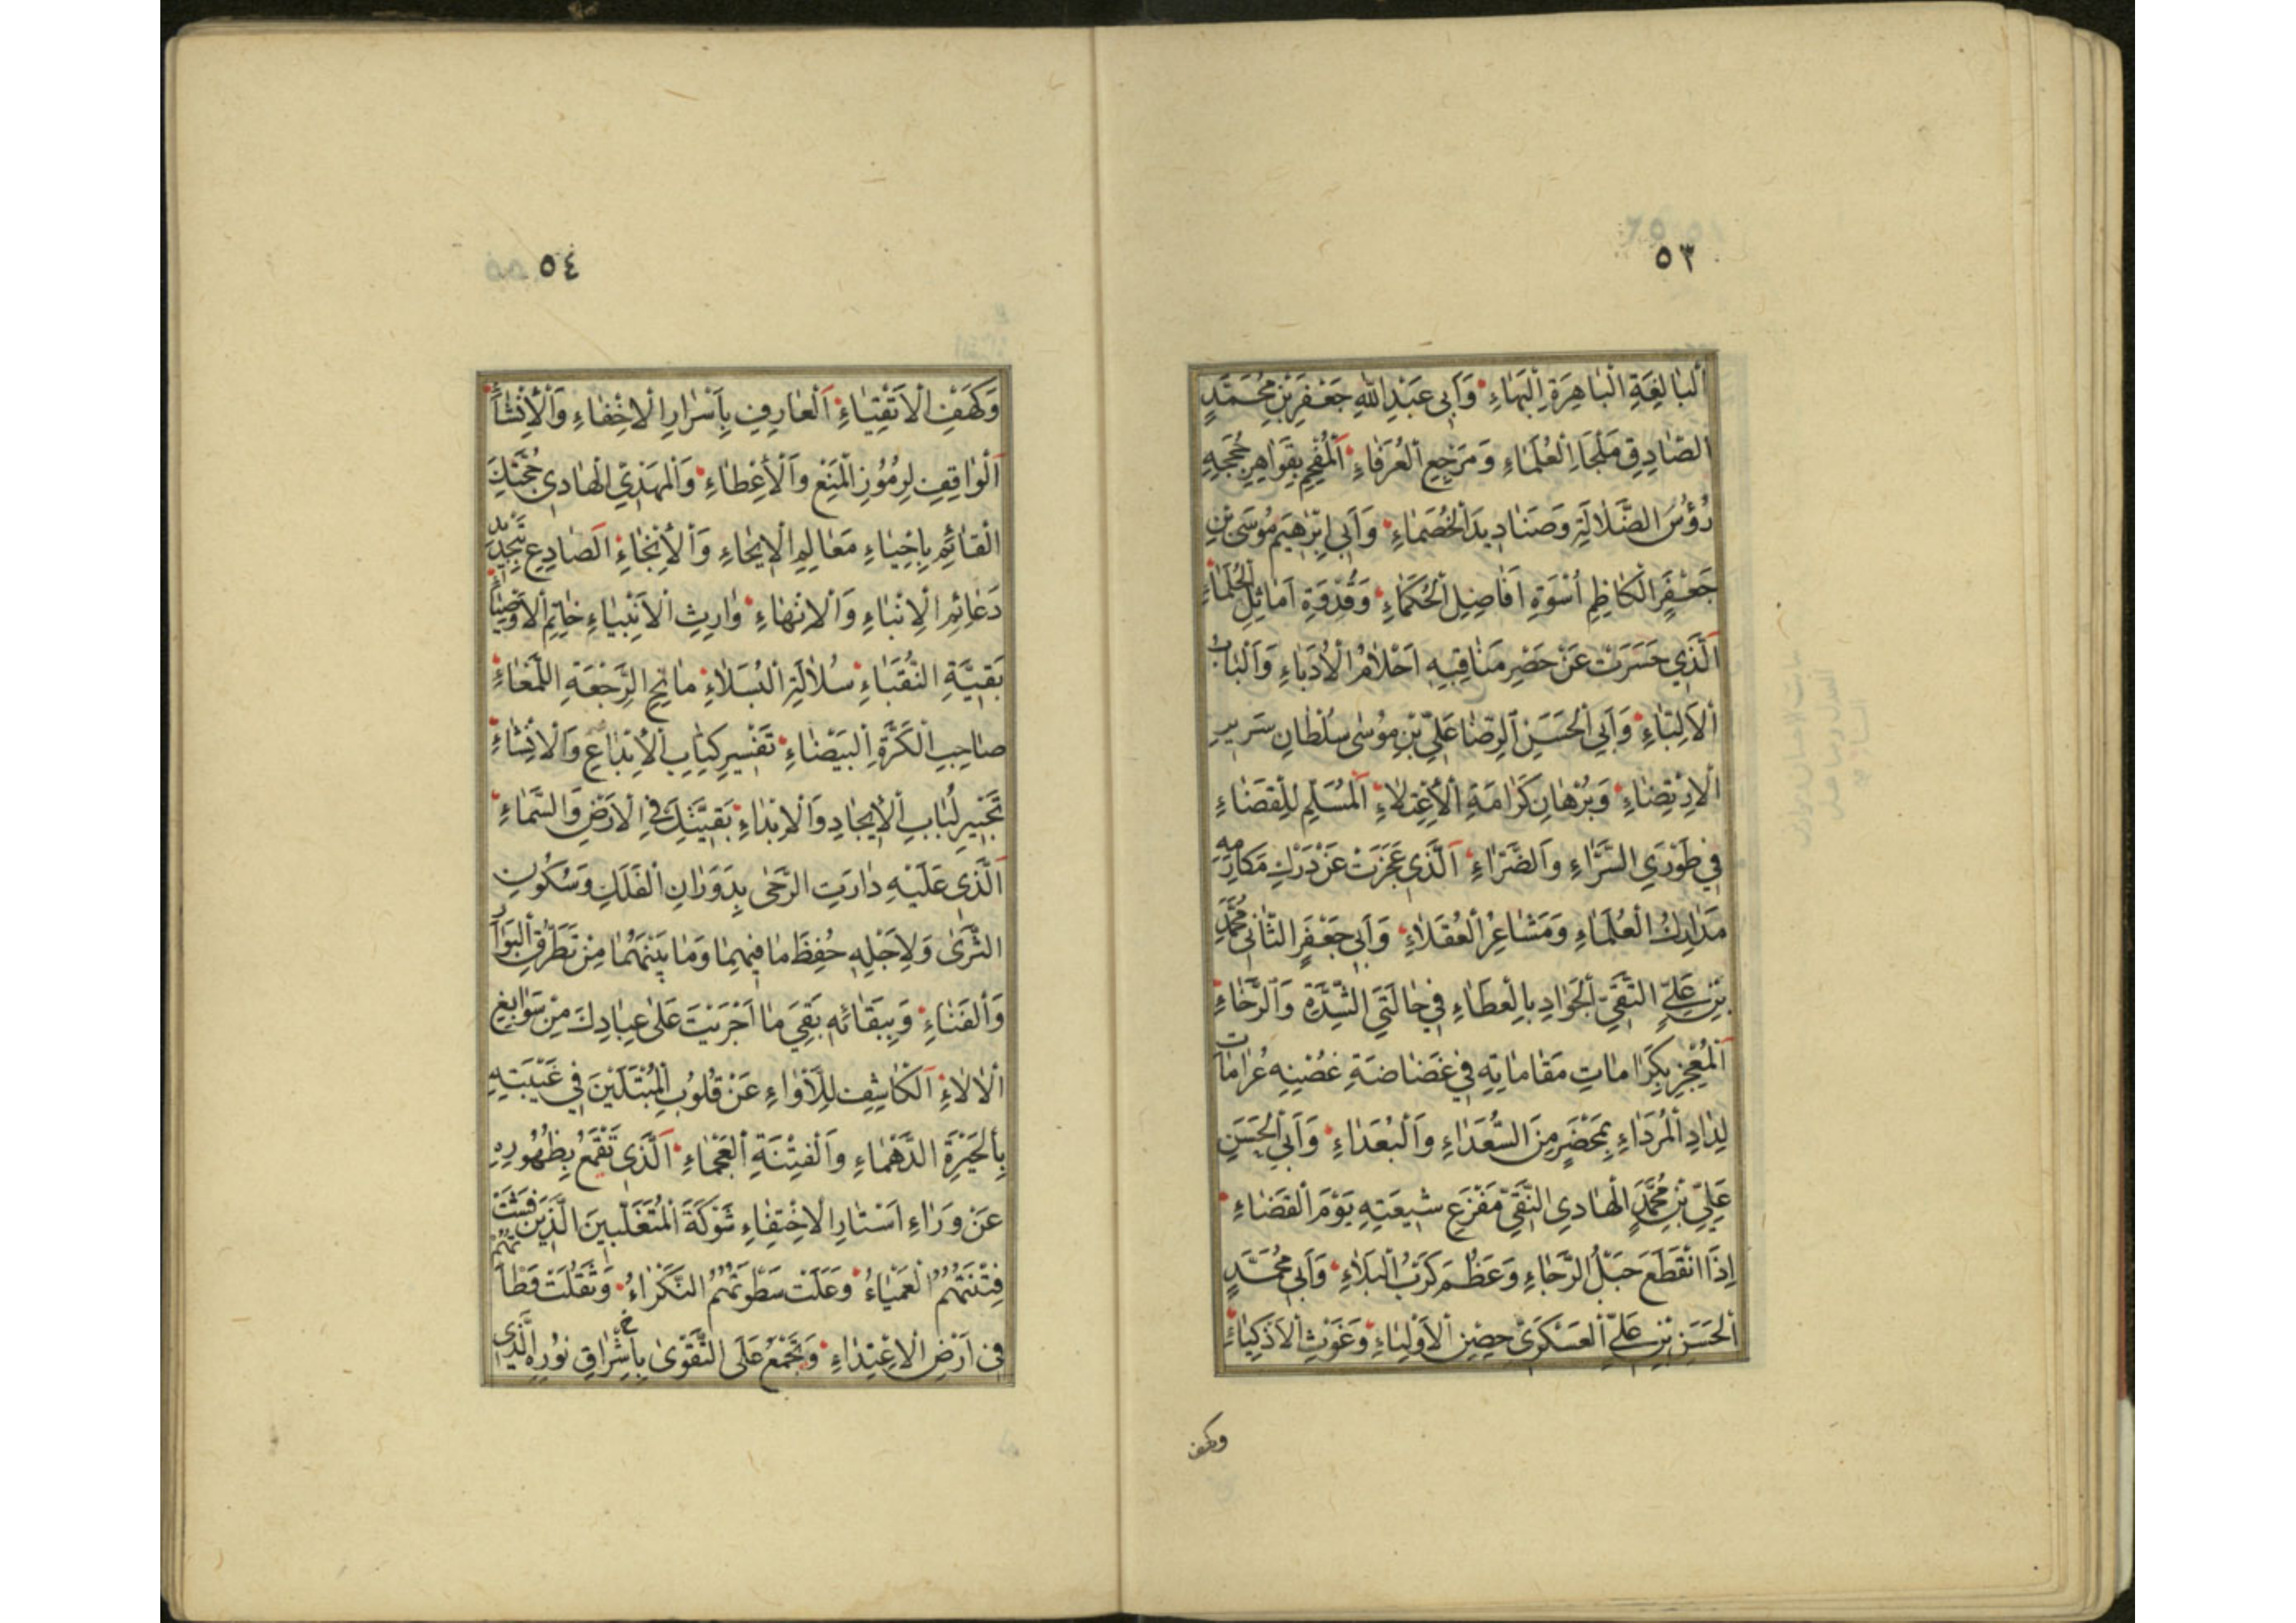 ٥٣
اَلْبالِغَةِ الْباهِرَةِ اِلْبَهاءِ وَاَبى عَبْدِ اللّٰهِ جَعْفَرِ بْنِ مُحَمَّدٍ
الصّادِقِ مَلْجَاءِ الْعُلَمَاءِ وَ مَرْجِعِ الْعُرَفاءِ اَلْمُفْحِمِ بِقَواهِرِ حُجَجِهِ
رُؤُسَ الضَّلالَةِ وَصَنادِيدَ الْخُصَماءِ وَاَبي اِبْرٰهيمَ مُوسَى بْنِ
جَعْفَرٍ الْكاظِمِ اُسْوَةِ اَفاضِلِ الْحُكَماءِ وَقُدْوَةِ اَماثِلِ الْحُلَماءِ
اَلَّذي حَسَرَتْ عَنْ حَصْرِ مَناقِبِهِ اَحْلامُ الْاُدَباءِ وَاَلْبابُ
الْاَلِبّاءِ وَاَبي الْحَسَنِ الرِّضا عَلِيِّ بْنِ مُوسٰى سُلْطانِ سَريرِ
الْاِرْتِضاءِ وَبُرْهانِ كَرامَةِ الْاِعْتِلاءِ اَلْمُسَلِّمِ لِلْقَضاءِ
في طَوْرَيِ السَّرّاءِ وَالضَّرّاءِ اَلَّذى عَجَزَتْ عَنْ دَرْكِ مَكارِمِهِ
مَدارِكُ الْعُلَماءِ وَمَشاعِرُ الْعُقَلاءِ وَاَبى جَعْفَرٍ الثّانى مُحَمَّدِ
بْنِ عَلِيٍّ التَّقِيِّ الْجَوادِ بِالْعَطاءِ في حالَتَيِ الشِّدَّةِ وَالرَّخاءِ
اَلْمُعْجِزِ بِكَراماتِ مَقاماتِهِ في غَضاضَةِ غُصْنِهِ عُراماتِ
لِدادِ الْمُرَداءِ بِمَحْضَرٍ مِنَ السُّعَداءِ وَالْبُعَداءِ وَاَبي الْحَسَنِ
عَلِيِّ بْنِ مُحَمَّدٍ الْهادِى النَّقِيِّ مَفْزَعِ شيعَتِهِ يَوْمَ الْقَضاءِ
اِذَا انْقَطَعَ حَبْلُ الرَّجاءِ وَعَظُمَ كَرْبُ الْبَلاءِ وَاَبي مُحَمَّدٍ
الْحَسَنِ بْنِ عَلِيٍّ الْعَسْكَرِيِّ حِصْنِ الْاَوْلِياءِ وَغَوْثِ الْاَذْكِياءِ
وكهف
٥٤
وَكَهْفِ الْاَتْقِياءِ اَلْعارِفِ بِاَسْرارِ الْاِخْفاءِ وَالْاِفْشاءِ
اَلْواقِفِ لِرُمُوزِ الْمَنْعِ وَالْاِعْطاءِ وَالْمَهْدِيِّ الْهادى حُجَّتِكَ
الْقائِمِ بِاِحْياءِ مَعالِمِ الْاِيحاءِ وَالْاِنْجاءِ الصّادِعِ بِتَجْديدِ
دَعائِمِ الْاِنْباءِ وَالْاِنْهاءِ وارِثِ الْاَنْبِياءِ خاتِمِ الْاَوْصِياءِ
بَقِيَّةِ النُّقَباءِ سُلالَةِ النُّبَلاءِ مانِحِ الرَّجْعَةِ اللَّمْعاءِ
صاحِبِ الْكَرَّةِ الْبَيْضاءِ تَفْسيرِ كِتابِ الْاِبْداعِ وَالْاِنْشاءِ
تَحْبيرِ لُبابِ الْاِيجادِ وَالْاِبْداءِ بَقِيَّتِكَ فِي الْاَرْضِ وَالسَّماءِ
اَلَّذى عَلَيْهِ دارَتِ الرَّحٰى بِدَوَرانِ الْفَلَكِ وَسُكُونِ
الثَّرىٰ وَلِاَجْلِهِ حُفِظَ ما فيهِما وَما بَيْنَهُما مِنْ تَطَرُّقِ الْبَوارِ
وَالْفَناءِ وَبِبَقائِهِ بَقِيَ ما اَجْرَيْتَ عَلىٰ عِبادِكَ مِنْ سَوابِغِ
الْاٰلاءِ اَلْكاشِفِ لِلَّاْواءِ عَنْ قُلُوبِ الْمُبْتَلَيْنَ في غَيْبَتِهِ
بِالْحَيْرَةِ الدَّهْماءِ وَالْفِتْنَةِ الْعَجْماءِ اَلَّذى تَقْمَعُ بِظُهُورِهِ
عَنْ وَراءِ اَسْتارِ الْاِخْتِفاءِ شَوْكَةَ الْمُتَغَلِّبينَ الَّذينَ فَشَتْ
فِتْنَتُهُمُ الْعَمْياءُ وَعَلَتْ سَطْوَتُهُمُ النَّكْراءُ وَثَقُلَتْ وَطْاَتُهُمْ
في اَرْضِ الْاِعْتِداءِ وَتَجْمَعُ عَلَى التَّقْوىٰ بِاِشْراقِ نُورِهِ الَّذى